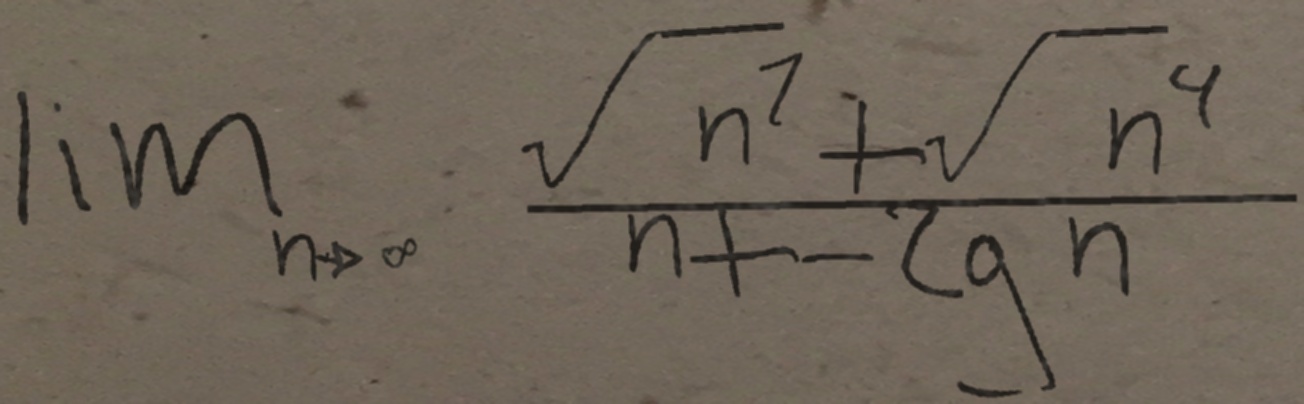 lim n→∞ (√n⁷ + √n⁴) / (n + - lg n)